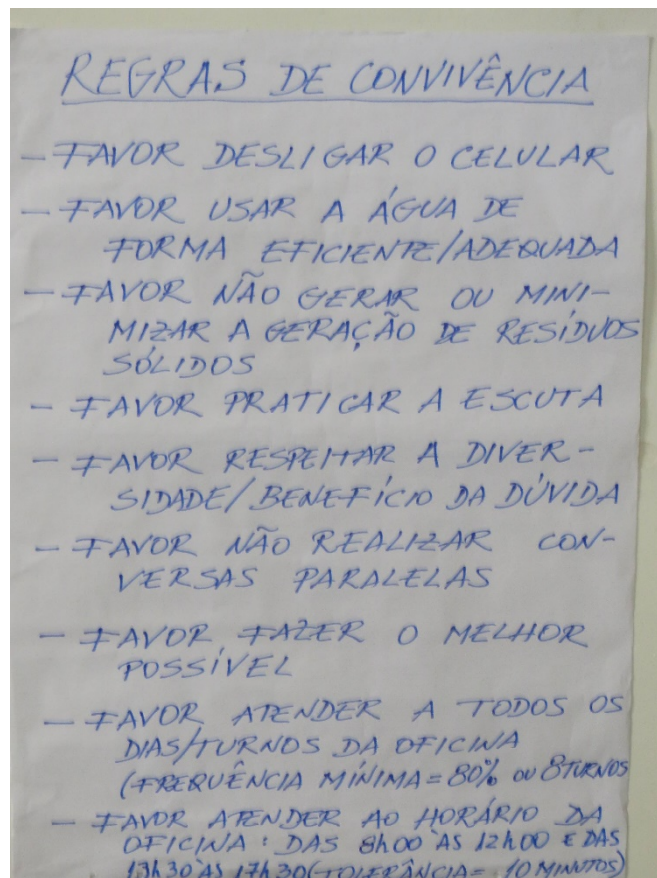 REGRAS DE CONVIVÊNCIA
- FAVOR DESLIGAR O CELULAR
- FAVOR USAR A ÁGUA DE
FORMA EFICIENTE/ADEQUADA
- FAVOR NÃO GERAR OU MINI-
MIZAR A GERAÇÃO DE RESÍDUOS
SÓLIDOS
- FAVOR PRATICAR A ESCUTA
- FAVOR RESPEITAR A DIVER-
SIDADE/BENEFÍCIO DA DÚVIDA
- FAVOR NÃO REALIZAR CON-
VERSAS PARALELAS
- FAVOR FAZER O MELHOR
POSSÍVEL
- FAVOR ATENDER A TODOS OS
DIAS/TURNOS DA OFICINA
(FREQUÊNCIA MÍNIMA = 80% OU 8 TURNOS
- FAVOR ATENDER AO HORÁRIO DA
OFICINA: DAS 8h00 ÀS 12h00 E DAS
13h30 ÀS 17h30 (TOLERÂNCIA = 10 MINUTOS)